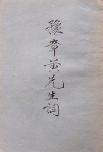 豫章黃先生詞